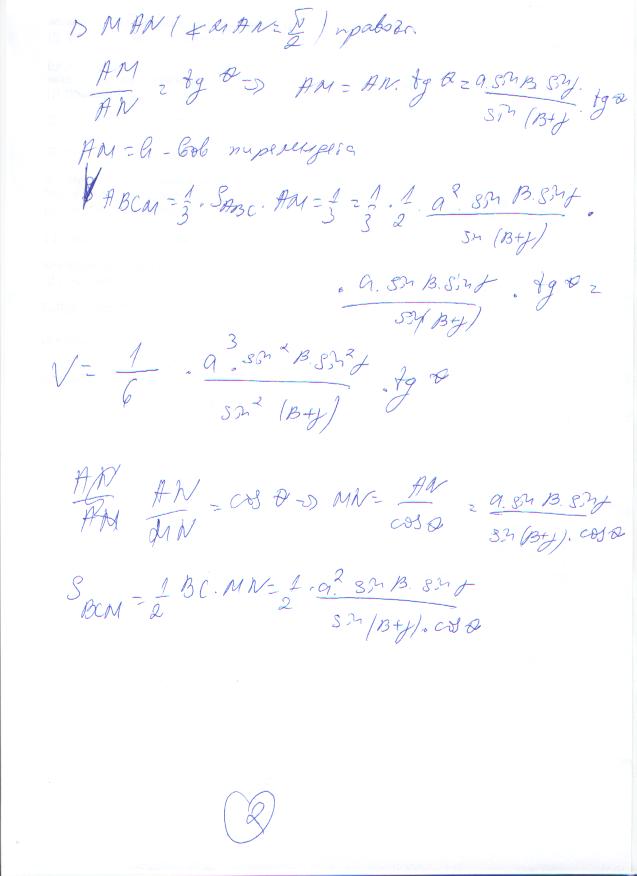 ▷ MAN (∢MAN = π/2) правоъг.
AM/AN = tg θ => AM = AN . tg θ = a . sin β . sin γ / sin (β+γ) . tg θ
AM = h - вов пирамидата
V ABCM = 1/3 . S ABC . AM = 1/3 = 1/3 . 1/2 . a² sin β . sin γ / sin (β+γ) .
. a . sin β . sin γ / sin(β+γ) . tg θ =
V = 1/6 . a³ . sin² β . sin² γ / sin² (β+γ) . tg θ
AN/AM AN/MN = cos θ => MN = AN / cos θ = a . sin β . sin γ / sin(β+γ) . cos θ
S BCM = 1/2 BC . MN = 1/2 . a² sin β . sin γ / sin(β+γ) . cos θ
2